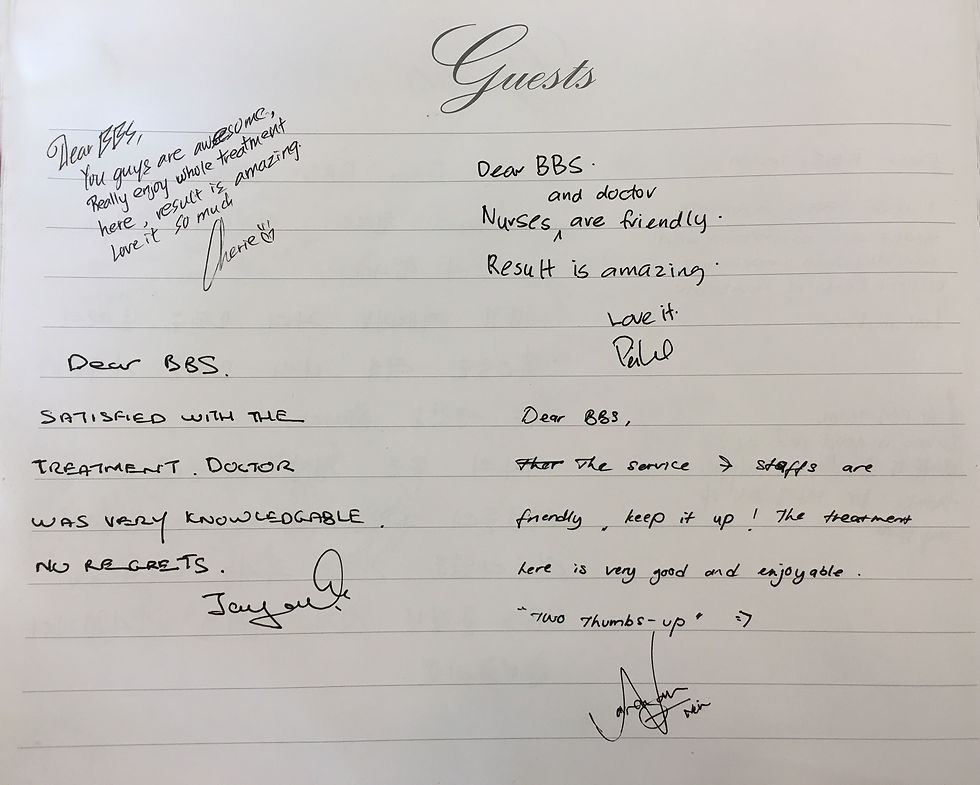 Guests
Dear BBS,
You guys are awesome,
Really enjoy whole treatment
here, result is amazing.
Love it so much
Cherie
Dear BBS.
and doctor
Nurses ^ are friendly.
Result is amazing.
Love it.
Dear BBS.
SATISFIED WITH THE
TREATMENT. DOCTOR
WAS VERY KNOWLEDGABLE.
NO REGRETS.
Dear BBS,
The service → staffs are
friendly, keep it up! The treatment
here is very good and enjoyable.
"Two Thumbs-up" :)